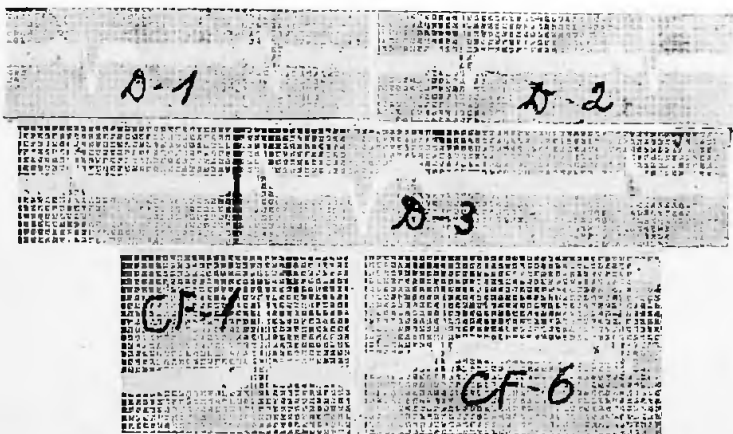 D-1
D-2
D-3
CF-1
CF-6